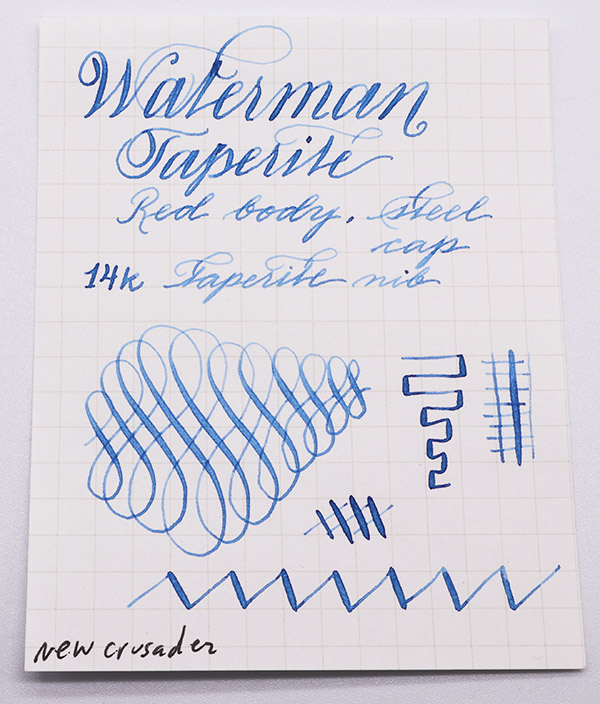 Waterman
Taperite
Red body, steel
cap
14k Taperite nib
New Crusader